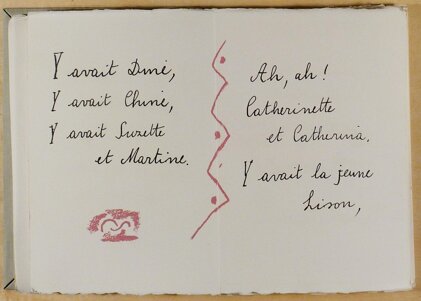 Y avait Diné,
Y avait Chiné,
Y avait Suzette
et Martine.
Ah, ah !
Catherinette
et Catherina.
Y avait la jeune
Lison,